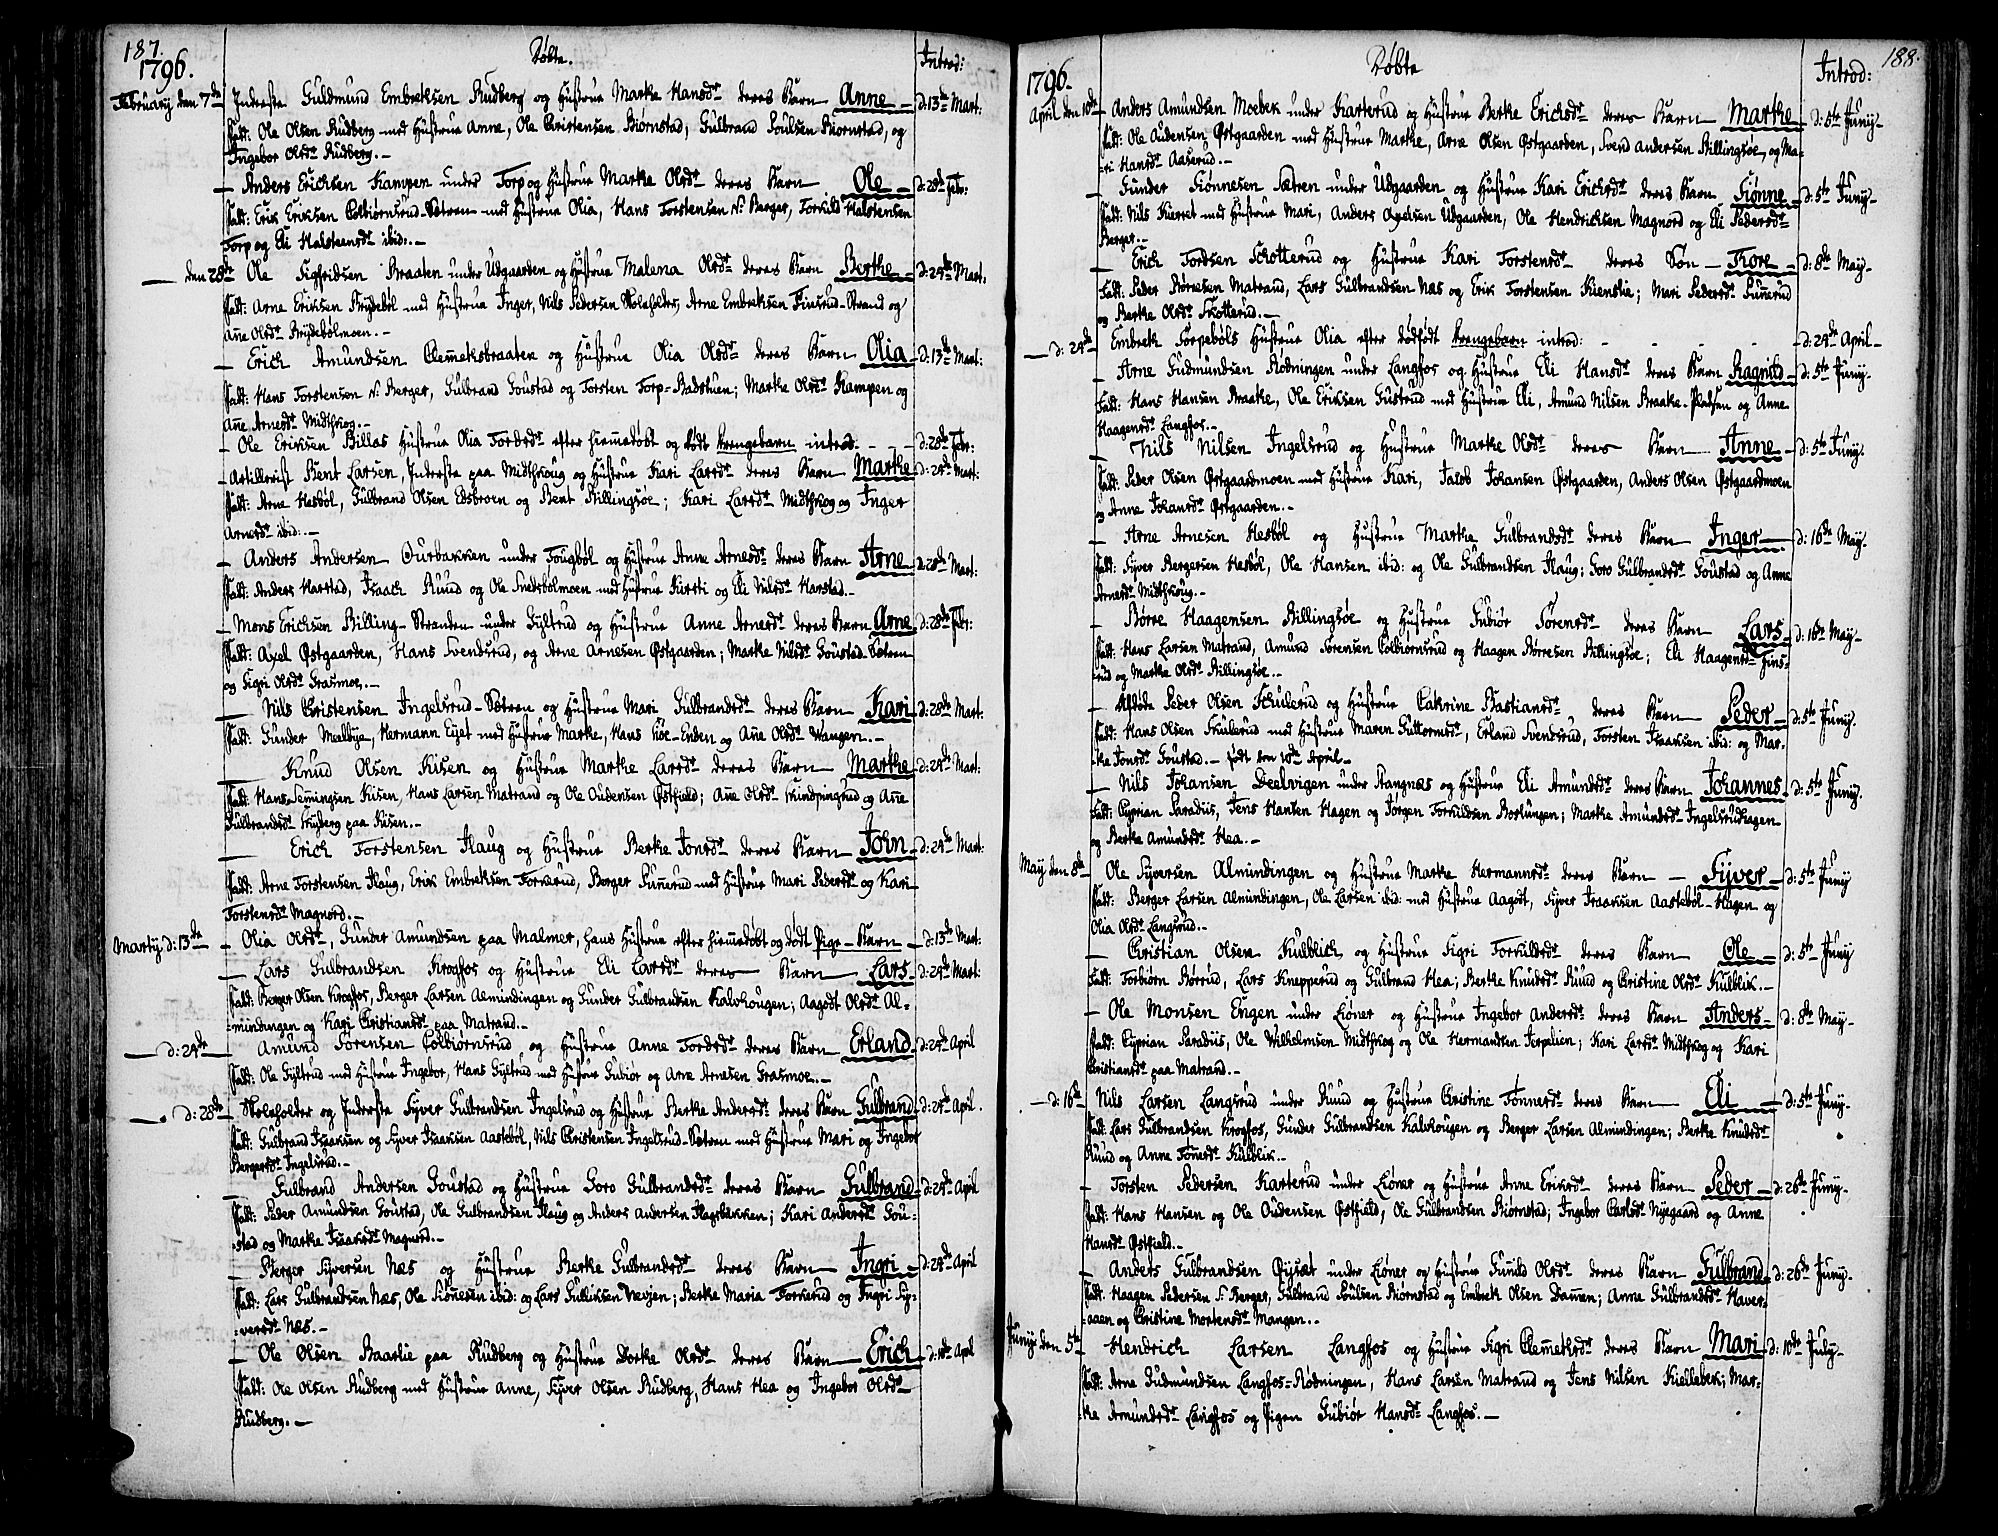 187.
1796.
Døbte.
Introd:
February den 7de Inderste Guldmund Embretsen Rudberg og Hustrue Marthe Hansdr deres Barn Anne d: 13de Mart:
Fadd: Ole Olsen Rudberg med Hustrue Anne, Ole Christensen Biørnstad, Gulbrand Poulsen Biørnstad, og
Ingebor Olsdr Rudberg.
Anders Erichsen Kampen under Torp og Hustrue Marthe Olsdr deres Barn Ole d: 28de Febr:
Fadd: Erik Eriksen Colbiørnsrud-Sætren med Hustrue Olia, Hans Torstensen N: Berger, Torkild Halstensen
Torp og Eli Halsteensdr ibid:
den 28de Ole Sigfridsen Braaten under Udgaarden og Hustrue Malena Olsdr deres Barn Berthe d: 24de Mart.
Fadd: Arne Eriksen Brydebøl med Hustrue Inger, Nils Pedersen Skoleholder, Arne Embretsen Finsrud-Strand og
Añe Olsdr Brydebølmoen.
Erich Amundsen Clemmetsbraaten og Hustrue Olia Olsdr deres Barn Olia d: 13de Mart:
Fadd: Hans Torstensen N: Berger, Gulbrand Goustad og Torsten Torp-Badstuen; Marthe Olsdr Kampen og
Añe Arnesdr Midtskog.
Ole Eriksen Billas Hustrue Olia Tordsdr efter hiemmedøbt og dødt Drengebarn introd: d: 28de Febr:
Artillerist Bent Larsen, Inderste paa Midtskoug og Hustrue Kari Larsdr deres Barn Marthe d: 24de Mart:
Fadd: Arne Hesbøl, Gulbrand Olsen Edsbroen og Bent Billingsøe; Kari Larsdr Midtskog og Inger
Arnesdr ibid:
Anders Andersen Ourbakken under Tougbøl og Hustrue Anne Arnesdr deres Barn Arne d: 28de Mart:
Fadd: Anders Harstad, Isaach Ruud og Ole Snedsbølmoen med Hustrue Kirsti og Eli Nilsdr Harstad.
Mons Erichsen Billing-Stranden under Gyltrud og Hustrue Anne Arnesdr deres Barn Arne d: 28de Febr:
Fadd: Axel Østgaarden, Hans Svendsrud, og Arne Arnesen Østgaarden; Marthe Nilsdr Goustad-Sætren
og Sigri Olsdr Grasmoe.
Nils Christensen Ingelsrud-Sætren og Hustrue Mari Gulbrandsdr deres Barn Kari d: 28de Mart:
Fadd: Gunder Melbye, Hermann Eyet med Hustrue Marthe, Hans Søe-Enden og Añe Olsdr Wangen.
Knud Olsen Kisen og Hustrue Marthe Larsdr deres Barn Marthe d: 24de Mart:
Fadd: Hans Semingsen Kisen, Hans Larsen Matrand og Ole Oudensen Østfield; Añe Olsdr og Añe
Gulbrandsdr Skyberg paa Kisen.
Erich Torstensen Haug og Hustrue Berthe Jonsdr deres Barn John d: 24de Mart:
Fadd: Arne Torstensen Haug, Erik Embretsen Torkerud, Berger Sunnerud med Hustrue Mari Pedersdr og Kari
Torstensdr Magnord.
Martij d: 13de Olia Olsdr, Gunder Amundsen paa Malmer, hans Hustrue efter hiemmedøbt og dødt Pige-Barn d: 13de Mart:
Lars Gulbrandsen Krogfos og Hustrue Eli Larsdr deres Barn Lars d: 24de Mart:
Fadd: Berger Olsen Krogfos, Berger Larsen Almindingen og Gunder Gulbrandsen Kalvkougen; Aagodt Olsdr Al=
=mindingen og Kari Christiansdr paa Matrand.
d: 24de Amund Sørensen Colbiørnsrud og Hustrue Anne Tordsdr deres Barn Erland d: 24de April
Fadd: Ole Gyltrud med Hustrue Ingebor, Hans Gyltrud med Hustrue Gubiør og Arne Arnesen Grasmoe.
d: 28de Skoleholder og Inderste Syver Gulbrandsen Ingelsrud og Hustrue Berthe Andersdr deres Barn Gulbrand d: 24de April.
Fadd: Gulbrand Isaaksen og Syver Isaaksen Aastebøl, Nils Christensen Ingelsrud-Sætren med Hustrue Mari og Ingebor
Bergersdr Ingelsrud.
Gulbrand Andersen Goustad og Hustrue Goro Gulbrandsdr deres Barn Gulbrand d: 24de April
Fadd: Peder Amundsen Goustad, Ole Gulbrandsen Haug og Anders Andersen Hagebakken; Kari Andersdr Gou=
=stad og Marthe Isaaksdr Magnord.
Berger Syversen Næs og Hustrue Berthe Gulbrandsdr deres Barn Ingri d: 24de April
Fadd: Lars Gulbrandsen Næs, Ole Siønesen ibid: og Lars Gulliksen Vevjen; Berthe Maria Torkerud og Ingri Sy=
=versdr Næs.
Ole Olsen Baarlie paa Rudberg og Hustrue Dorthe Olsdr deres Barn Erich d: 10de April
Fadd: Ole Olsen Rudberg med Hustrue Anne, Syver Olsen Rudberg, Hans Hea og Ingebor Olsdr
Rudberg.
188.
1796.
Døbte
Introd:
April den 10de Anders Amundsen Moebek under Karterud og Hustrue Berthe Erichsdr deres Barn Marthe d: 5te Juny
Fadd: Ole Oudensen Østgaarden med Hustrue Marthe, Arne Olsen Østgaarden, Svend Andersen Billingsøe, og Ma=
=ri Hansdr Aaserud.
Gunder Siønnesen Sætren under Udgaarden og Hustrue Kari Erichsdr deres Barn Siønne d: 5te Juny
Fadd: Nils Kierret med Hustrue Mari, Anders Axelsen Udgaarden, Ole Hendrichsen Magnord og Eli Pedersdr
Berger.
Erich Tordsen Skotterud og Hustrue Kari Torstensdr deres Søn Tore d: 8de May
Fadd: Peder Børresen Matrand, Lars Gulbrandsen Næs og Erik Torstensen Kienslie; Mari Pedersdr Sunnerud
og Berthe Olsdr Skotterud.
d: 24de Embret Torpebøls Hustrue Olia efter dødfødt Drengebarn introd: d: 24de April
Arne Gudmundsen Rødningen under Langfos og Hustrue Eli Hansdr deres Barn Ragnild d: 5te Juny
Fadd: Hans Hansen Braate, Ole Eriksen Gustrud med Hustrue Eli, Amund Nilsen Braate-Pladsen og Anne
Haagensdr Langfos.
Nils Nilsen Ingelsrud og Hustrue Marthe Olsdr deres Barn Anne d: 5te Juny.
Fadd: Peder Olsen Østgaardmoen med Hustrue Kari, Jacob Johansen Østgaarden, Anders Olsen Østgaardmoen
og Anne Johansdr Østgaarden.
Arne Arnesen Hesbøl og Hustrue Marthe Gulbrandsdr deres Barn Inger d: 16de May.
Fadd: Syver Bergersen Hesbøl, Ole Hansen ibid: og Ole Gulbrandsen Haug; Goro Gulbrandsdr Goustad og Anne
Arnesdr Midtskoug.
Børre Haagensen Billingsøe og Hustrue Gubiør Sørensdr deres Barn Lars d: 16de May
Fadd: Hans Larsen Matrand, Amund Sørensen Colbiørnsrud og Haagen Børresen Billingsøe; Eli Haagensdr Fins=
=rud og Marthe Olsdr Billingsøe.
Afdøde Peder Olsen Skulerud og Hustrue Cathrine Bastiansdr deres Barn Peder d: 5te Juny.
Fadd: Hans Olsen Skulerud med Hustrue Maren Guttormsdr, Erland Svendsrud, Torsten Isaaksen ibid: og Mar=
=the Jonsdr Goustad. født den 10de April
Nils Johansen Deelvigen under Stangnæs og Hustrue Eli Amundsdr deres Barn Johannes d: 5te Juny.
Fadd: Cyprian Paradiis, Jens Hansen Hagen og Jørgen Torkildsen Roslungen; Marthe Amundsdr Ingelsrudhagen
og Berthe Amundsdr Hea.
May den 8de Ole Syversen Almindingen og Hustrue Marthe Hermannsdr deres Barn Syver d: 5te Juny
Fadd: Berger Larsen Almindingen, Ole Larsen ibid: med Hustrue Aagodt, Syver Isaaksen Aastebøl-Hagen og
Olia Olsdr Langsrud.
Christian Olsen Kulblich og Hustrue Sigri Torkildsdr deres Barn Ole d: 5te Juny
Fadd: Torbiørn Børrud, Lars Knepperud og Gulbrand Hea; Berthe Knudsdr Ruud og Christine Olsdr Kulblik.
Ole Monsen Engen under Liøner og Hustrue Ingebor Andersdr deres Barn Anders d: 8de May
Fadd: Cyprian Paradiis, Ole Wilhelmsen Midtskog og Ole Hermandsen Jerpelien; Kari Larsdr Midtskog og Kari
Christiansdr paa Matrand.
d: 16de Nils Larsen Langsrud under Ruud og Hustrue Christine Tønnesdr deres Barn Eli d: 5te Juny
Fadd: Lars Gulbrandsen Krogfos, Gunder Gulbrandsen Kalvkougen og Berger Larsen Almindingen; Berthe Knudsdr
Ruud og Anne Tønesdr Kulblik.
Torsten Pedersen Karterud under Liøner og Hustrue Anne Eriksdr deres Barn Peder d: 26de Juny
Fadd: Hans Hansen og Ole Oudensen Østfield, Ole Gulbrandsen Biørnstad; Ingebor Carlsdr Nyegaard og Anne
Hansdr Østfield.
Anders Gulbrandsen under Liøner og Hustrue Gunild Olsdr deres Barn Gulbrand d: 26de Juny
Fadd: Haagen Pedersen S: Berger, Gulbrand Poulsen Biørnstad og Embret Olsen Dammen; Anne Gulbrandsdr Haver=
=aaen og Christine Mortensdr Mangen.
Juny den 5te Hendrich Larsen Langfos og Hustrue Sigri Clemmetsdr deres Barn Mari d: 10de July
Fadd: Arne Gudmundsen Langfos-Rødningen, Hans Larsen Matrand og Jens Nilsen Kiellebek; Mar=
=the Amundsdr Langfos og Pigen Gubiør Hansdr Langfos.